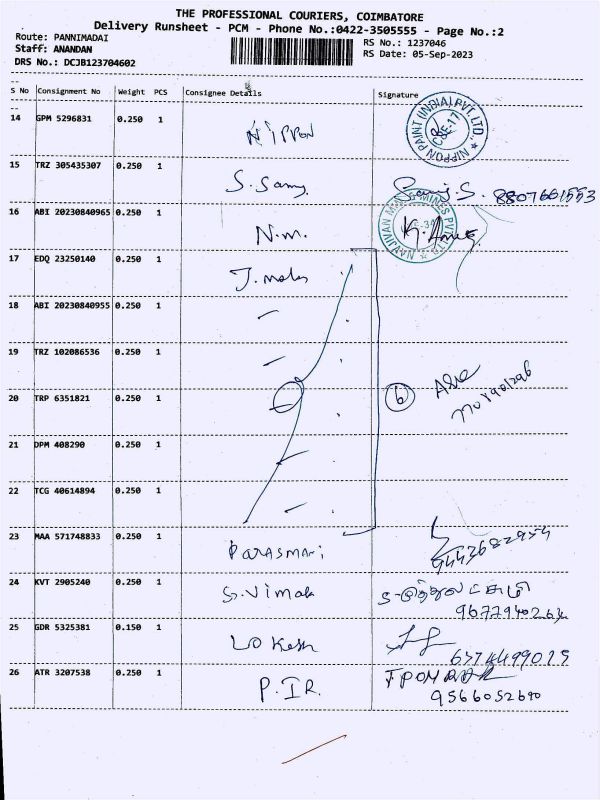 THE PROFESSIONAL COURIERS, COIMBATORE
Delivery Runsheet - PCM - Phone No.:0422-3505555 - Page No.:2
Route: PANNIMADAI
RS No.: 1237046
Staff: ANANDAN
RS Date: 05-Sep-2023
DRS No.: DCJB123704602
S No Consignment No Weight PCS Consignee Details Signature
14 GPM 5296831 0.250 1 NIPPON NIPPON PAINT (INDIA) PVT. LTD., CBE-17
15 TRZ 305435307 0.250 1 S. Samy S. 8807661553
16 ABI 20230840965 0.250 1 N.M.
17 EDQ 23250140 0.250 1
18 ABI 20230840955 0.250 1
19 TRZ 102086536 0.250 1
20 TRP 6351821 0.250 1 6
21 DPM 408290 0.250 1
22 TCG 40614894 0.250 1
23 MAA 571748833 0.250 1 Parasmani 9443682954
24 KVT 2905240 0.250 1 S. Vimala
25 GDR 5325381 0.150 1 Lokesh
26 ATR 3207538 0.250 1 P.IR. 9566052640